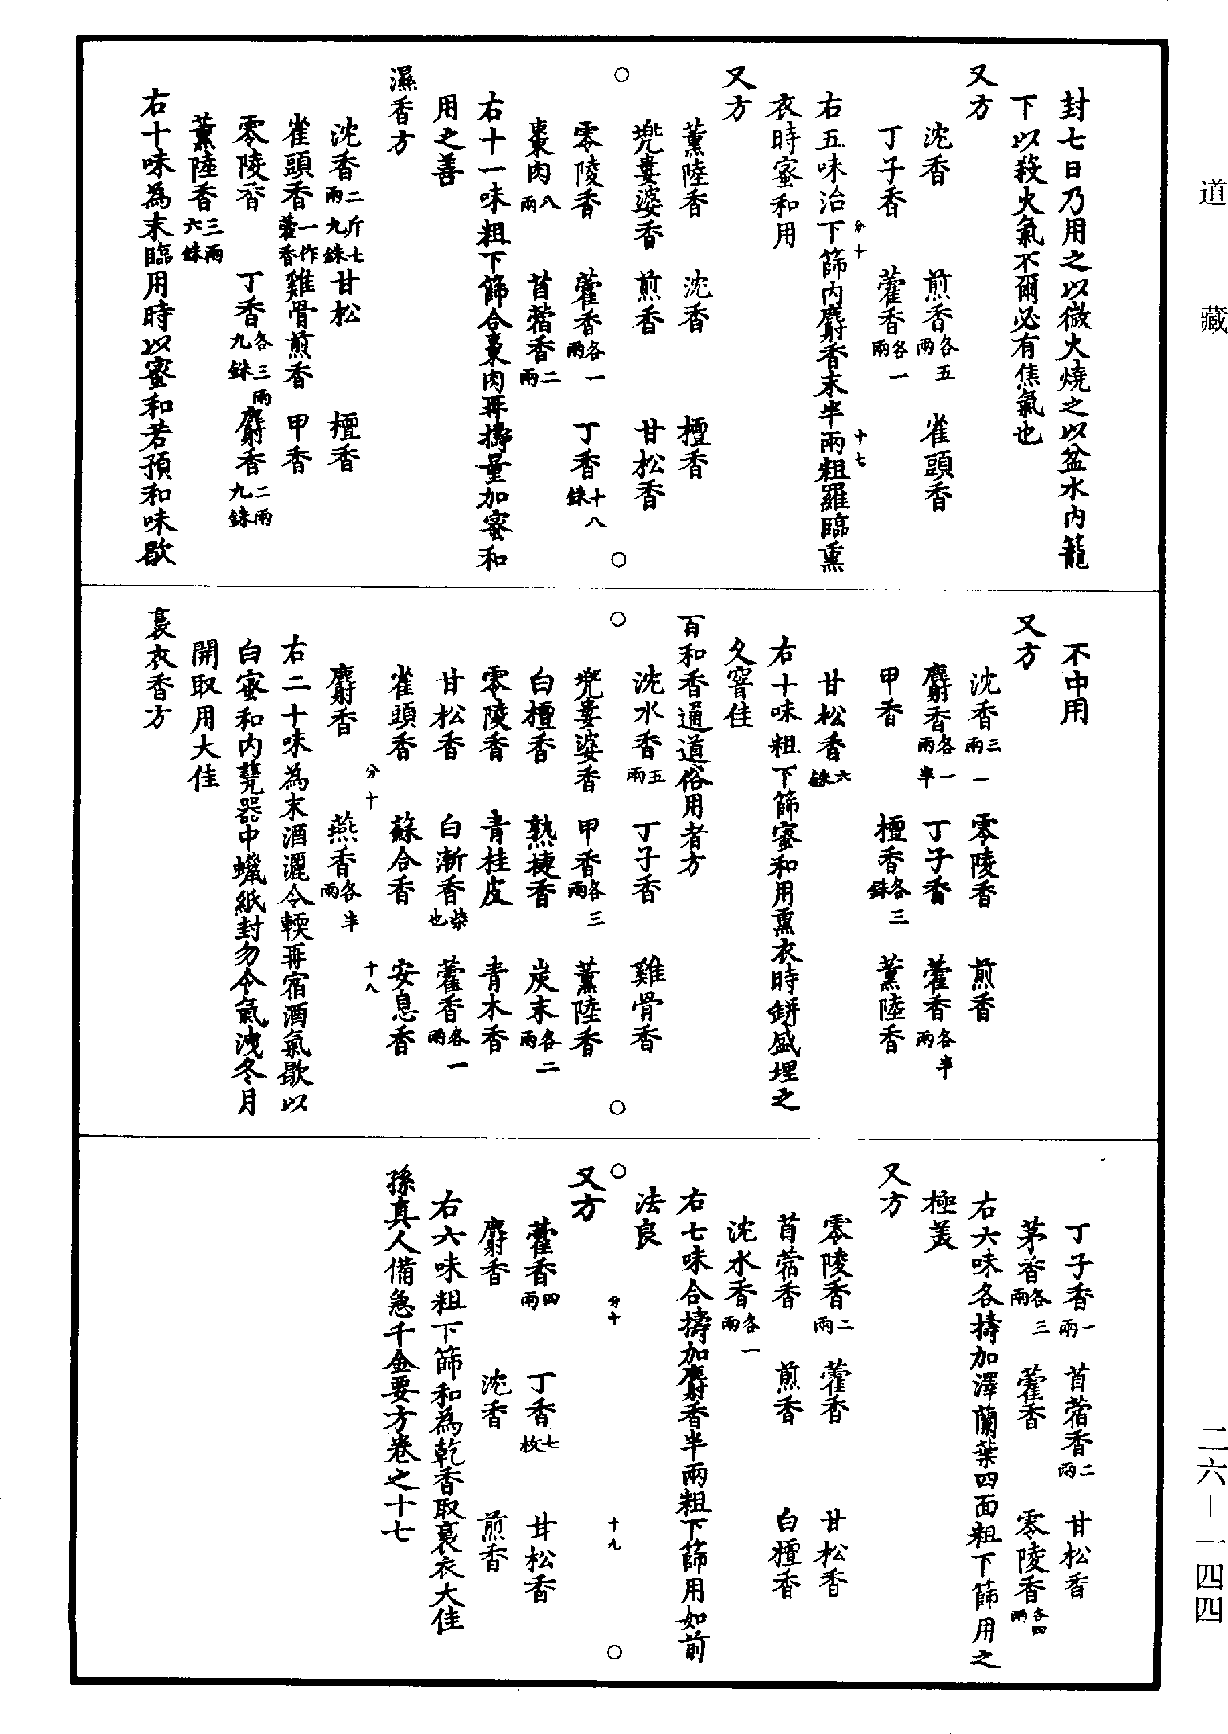 道藏
封七日乃用之以微火燒之以盆水內籠
下以殺火氣不爾必有焦氣也
又方
沈香　煎香各五兩　雀頭香
丁子香　藿香各一兩
分十　十七
右五味治下篩內麝香末半兩粗羅臨熏
衣時蜜和用
又方
薰陸香　沈香　檀香
兜婁婆香　煎香　甘松香
零陵香　藿香各一兩　丁香十八銖
棗肉八兩　苜蓿香二兩
右十一味粗下篩合棗肉再擣量加蜜和
用之善
濕香方
沈香二斤七兩九銖　甘松　檀香
雀頭香一作藿香　雞骨煎香　甲香
零陵香　丁香各三兩九銖　麝香二兩九銖
薰陸香三兩六銖
右十味為末臨用時以蜜和若預和味歇
不中用
又方
沈香三兩　零陵香　煎香
麝香各一兩半　丁子香　藿香各半兩
甲香　檀香各三銖　薰陸香
甘松香六銖
右十味粗下篩蜜和用熏衣時缾盛埋之
久窨佳
百和香通道俗用者方
沈水香五兩　丁子香　雞骨香
兜婁婆香　甲香各三兩　薰陸香
白檀香　熟捷香　炭末各二兩
零陵香　青桂皮　青木香
甘松香　白漸香柴也　藿香各一兩
雀頭香　蘇合香　安息香
分十　十八
麝香　燕香各半兩
右二十味為末酒灑令輭再宿酒氣歇以
白蜜和內甆器中蠟紙封勿令氣洩冬月
開取用大佳
裛衣香方
丁子香一兩　苜蓿香二兩　甘松香
茅香各三兩　藿香　零陵香各四兩
右六味各擣加澤蘭葉四面粗下篩用之
極美
又方
零陵香二兩　藿香　甘松香
苜蓿香　煎香　白檀香
沈水香各一兩
右七味合擣加麝香半兩粗下篩用如前
法良
分十　十九
又方
藿香四兩　丁香七枚　甘松香
麝香　沈香　煎香
右六味粗下篩和為乾香取裛衣大佳
孫真人備急千金要方卷之十七
二六－一四四